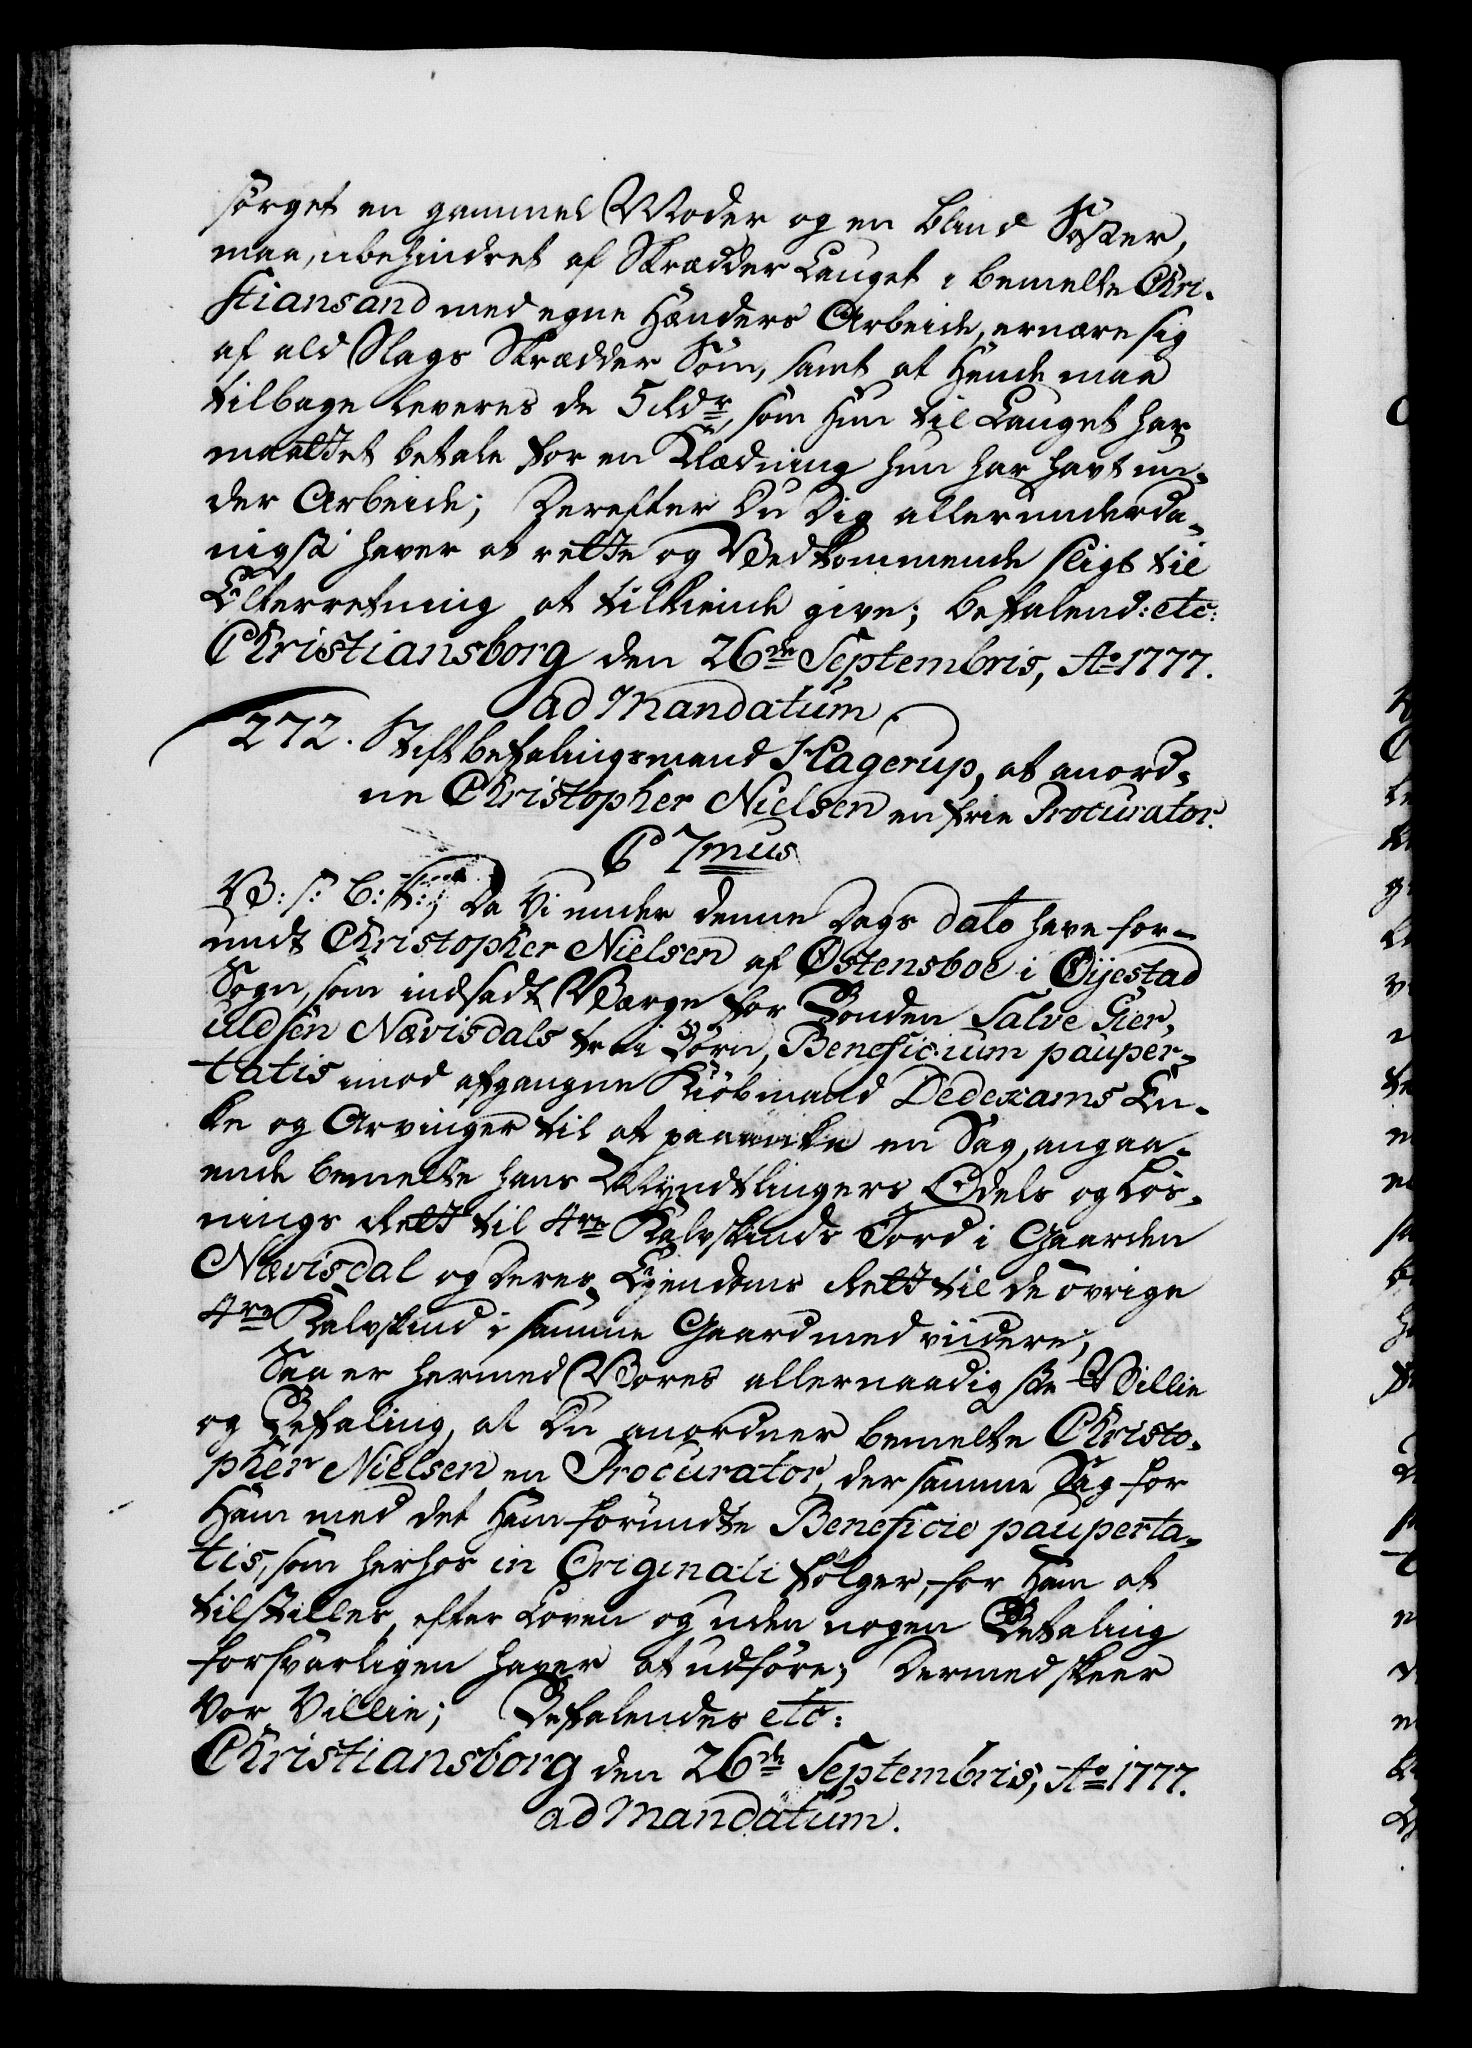 sørget en gammel Moder og en blind Søster,
maa, ubehindret af Skrædder Lauget i bemelte Chri-
stiansand med egne Hænders Arbeide, ernære sig
af ald Slags Skrædder Søm, samt at Hende maa
tilbage leveres de 5 Rdr, som Hun til Lauget har
maattet betale for en Klædning hun har havt un-
der Arbeide; Derefter Du Dig allerunderda-
nigst haver at rette og Vedkommende sligt til
Efterretning at tilkiende give; befalend: etc:
Christiansborg den 26de Septembris, Ao 1777.
ad Mandatum.
272. Stiftbefalingsmand Hagerup, at anord-
ne Christopher Nielsen en frie Procurator.
C 7mus
V: S: G: T:, Da Vi under denne Dags dato have for-
undt Christopher Nielsen af Østensboe i Øijestad
Sogn, som indsadt Værge for Bonden Salve Gier-
uldsen Nævisdals trei Børn, Beneficium pauper-
tatis imod afgangne Kiøbmand Dedexams En-
ke og Arvinger til at paaanke en Sag, angaa-
ende bemelte hans Myndtlingers Odels og Løs-
nings Rett til 4re Kalvskinds Jord i Gaarden
Nævisdal og deres Eyendoms Rett til de øvrige
4re Kalvskind i samme Gaard med viidere;
Saa er hermed Vores allernaadigste Villie
og Befaling, at Du anordner bemelte Christo-
pher Nielsen en Procurator, der samme Sag for
Ham med det Ham forundte Beneficio pauperta-
tis, som herhos in Originali følger, for Ham at
tilstilles, efter Loven og uden nogen Betaling
forsvarligen haver at udføre; Dermed skeer
Vor Villie; Befalendes etc:
Christiansborg den 26de Septembris, Ao 1777.
ad Mandatum.